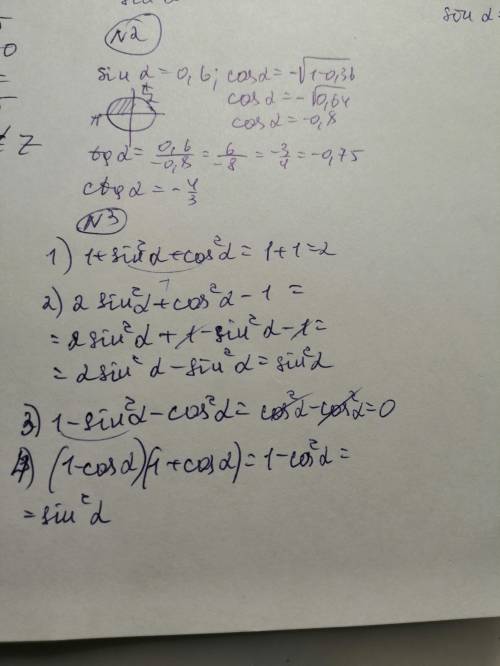 sin α
sin α=
0
=
Z
N2
sin α = 0,6; cos α = -√1-0,36
cos α = -√0,64
cos α = -0,8
π/2
π
tg α = 0,6/-0,8 = 6/-8 = -3/4 = -0,75
ctg α = -4/3
N3
1) 1+sin²α+cos²α = 1+1=2
1
2) 2 sin²α+cos²α-1 =
= 2sin²α + 1-sin²α-1=
= 2sin²α-sin²α=sin²α
3) 1-sin²α-cos²α= cos²α-cos²α=0
4) (1-cosα)(1+cosα)=1-cos²α=
= sin²α